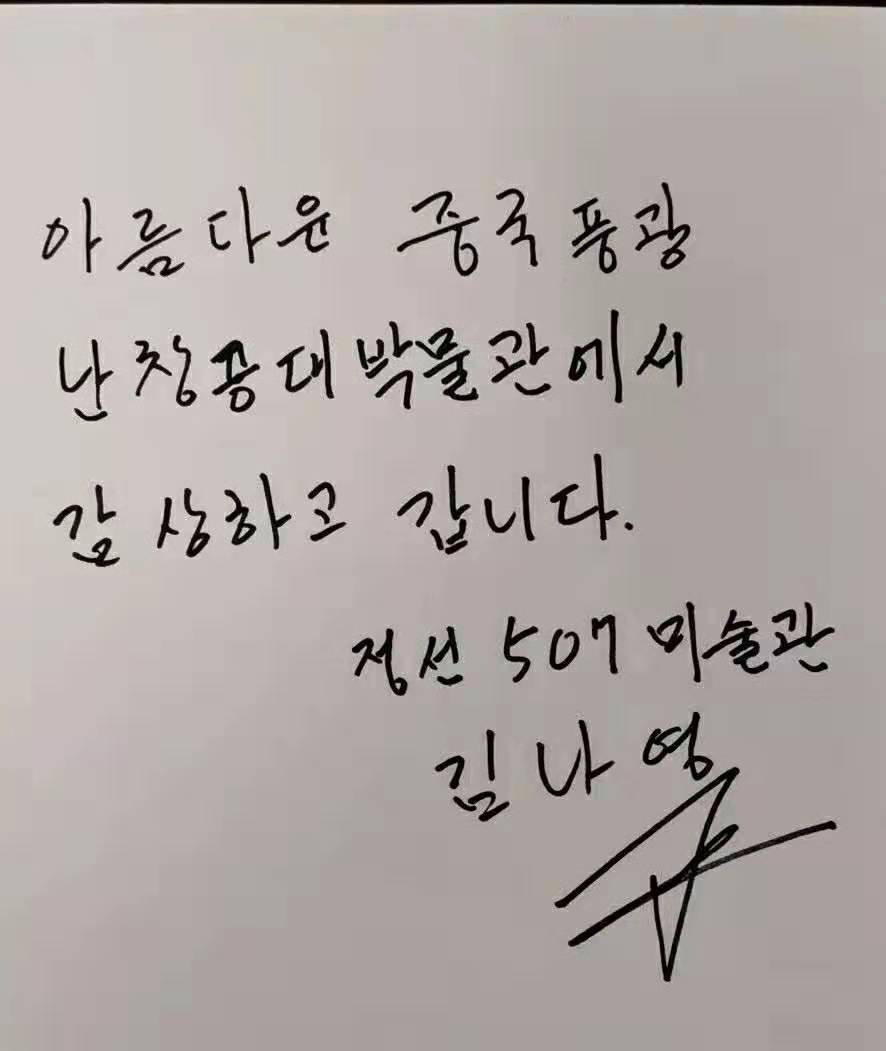 아름다운 중국 풍광
난창공대박물관에서
감상하고 갑니다.
정선 507 미술관
김나영